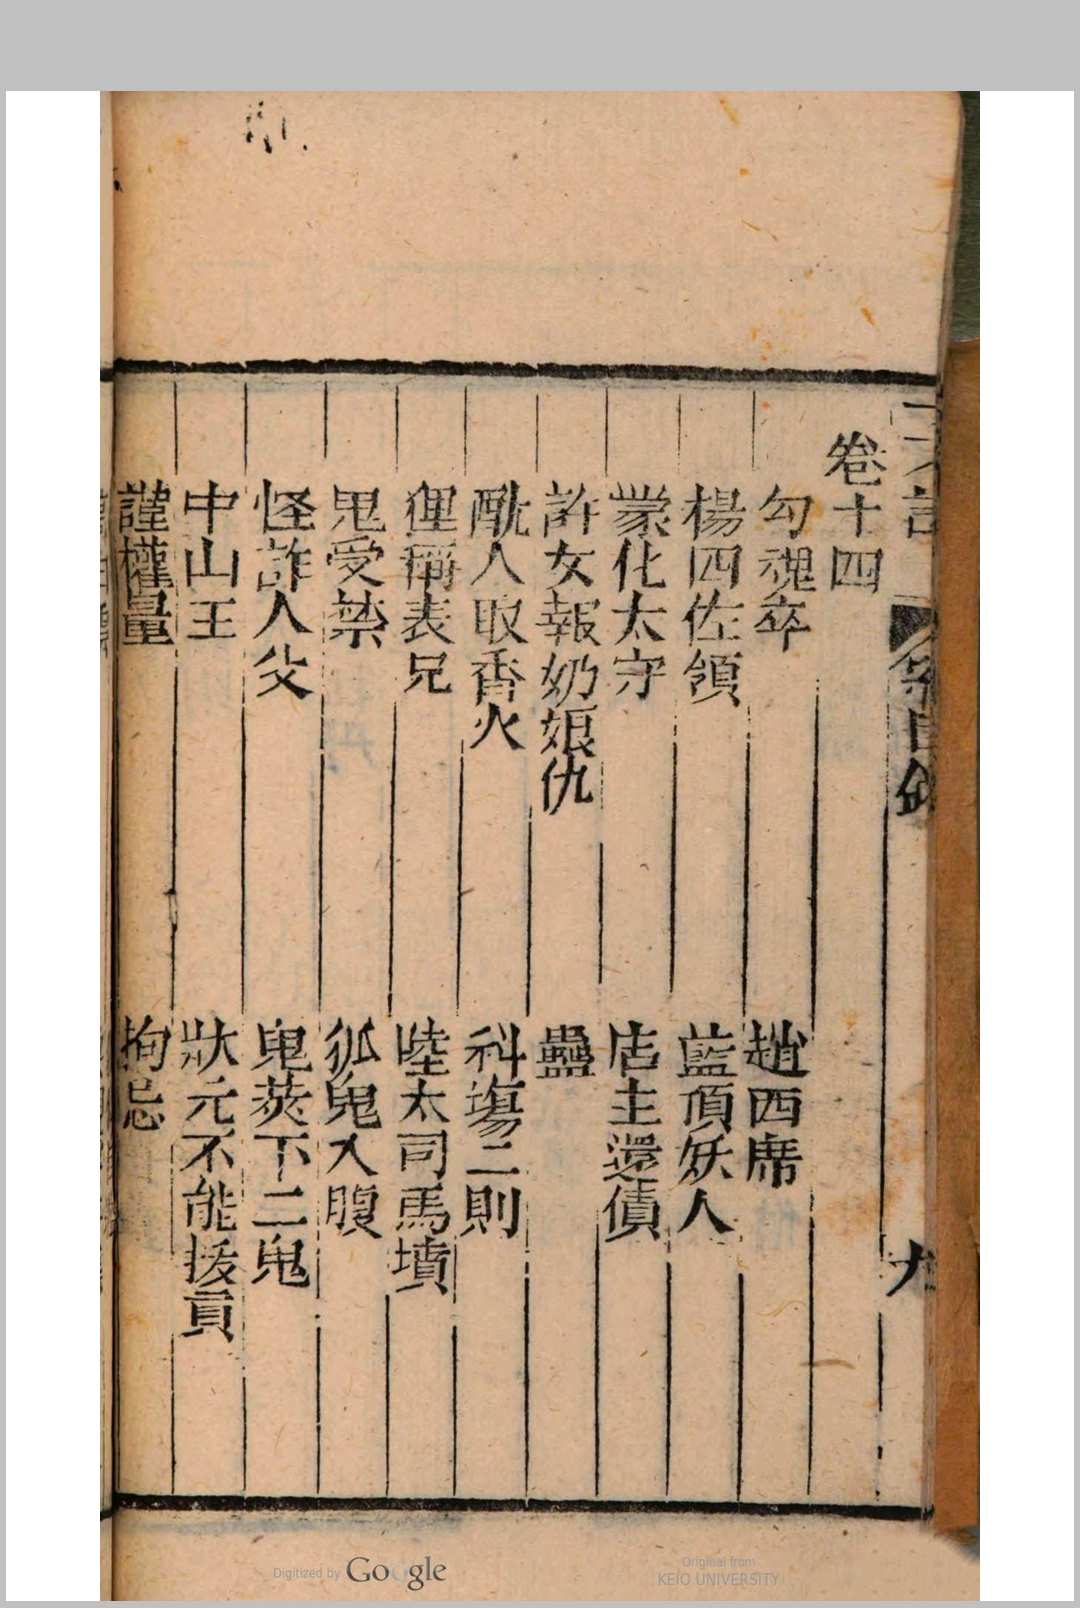 卷十四
勾魂卒
趙西席
楊四佐領
藍頂妖人
蒙化太守
店主還債
許女報奶娘仇
蠱
酖人取香火
科場二則
狸稱表兄
陸太司馬墳
鬼受禁
狐鬼入腹
怪詐人父
鬼莢下二鬼
中山王
狀元不能拔貢
謹權量
拘忌
Digitized by Google
Original from
KEIO UNIVERSITY